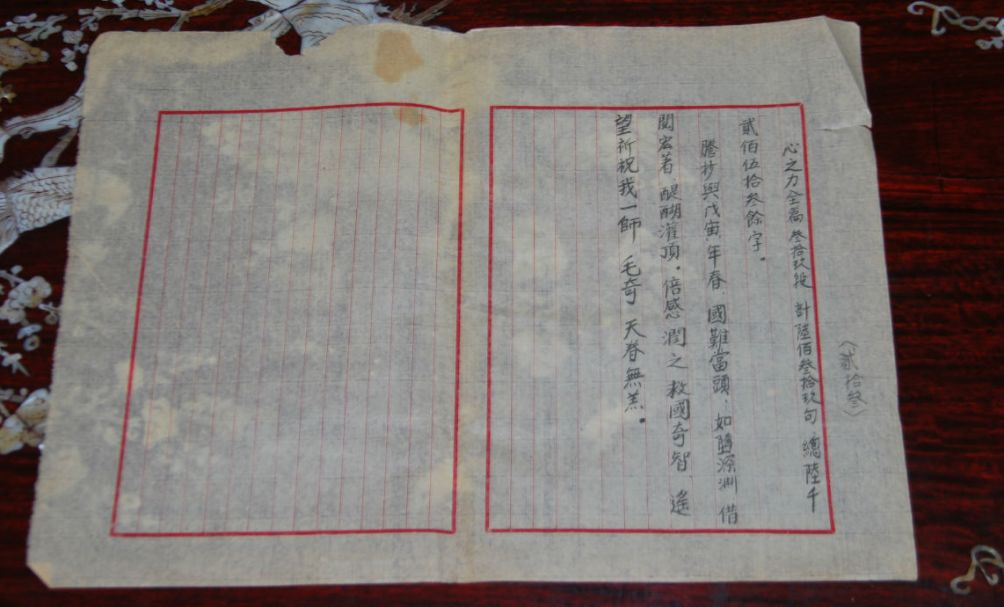 〈貳拾叄〉
心之力全篇 叄拾玖段 計陸佰叄拾玖句 總陸千
貳佰伍拾叄餘字。
謄抄與戊寅年春 國難當頭，如墮深淵 借
閱宏著，醍醐灌頂。倍感潤之救國奇智，遙
望祈祝我一師 毛奇 天眷無恙。